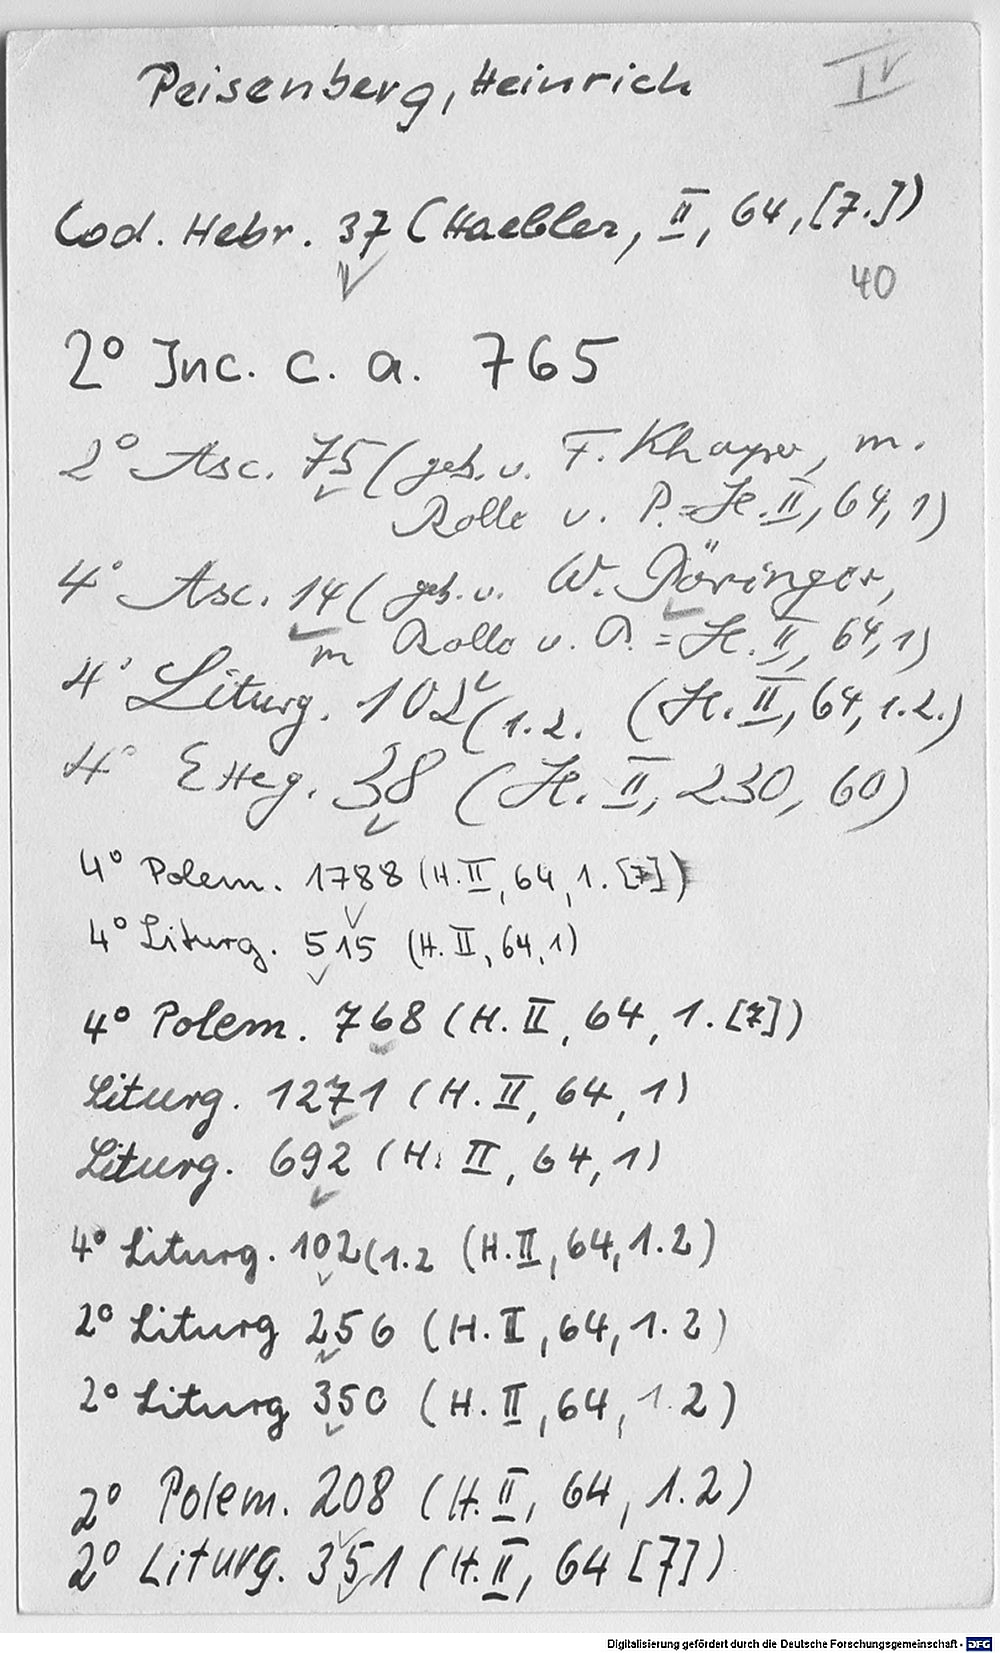 Peisenberg, Heinrich
IV
Cod. Hebr. 37 (Haebler, II, 64, [7.])
40
2° Inc. c. a. 765
2° Asc. 75 (geb. v. F. Khayser, m.
Rolle u. P. = H. II, 64, 1)
4° Asc. 14 (geb. v. W. Pöringer,
m Rolle u. P. = H. II, 64, 1)
4° Liturg. 102 (1.2. (H. II, 64, 1.2.)
4° Exeg. 38 (H. II, 230, 60)
4° Polem. 1788 (H. II, 64, 1. [7])
4° Liturg. 515 (H. II, 64, 1)
4° Polem. 768 (H. II, 64, 1. [7])
Liturg. 1271 (H. II, 64, 1)
Liturg. 692 (H. II, 64, 1)
4° Liturg. 102 (1.2 (H. II, 64, 1.2)
2° Liturg 256 (H. II, 64, 1.2)
2° Liturg 350 (H. II, 64, 1.2)
2° Polem. 208 (H. II, 64, 1.2)
2° Liturg. 351 (H. II, 64 [7])
Digitalisierung gefördert durch die Deutsche Forschungsgemeinschaft - DFG